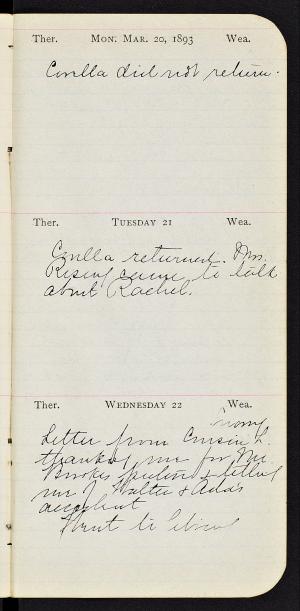 Ther. MON. MAR. 20, 1893 Wea.
Corella did not return.
Ther. TUESDAY 21 Wea.
Corella returned. Mrs.
Rising came to talk
about Rachel.
Ther. WEDNESDAY 22 Wea.
Letter from Cousin L.
thanking me for Mr.
Brookes & telling
me of Walter & Ada's
accident
Went to